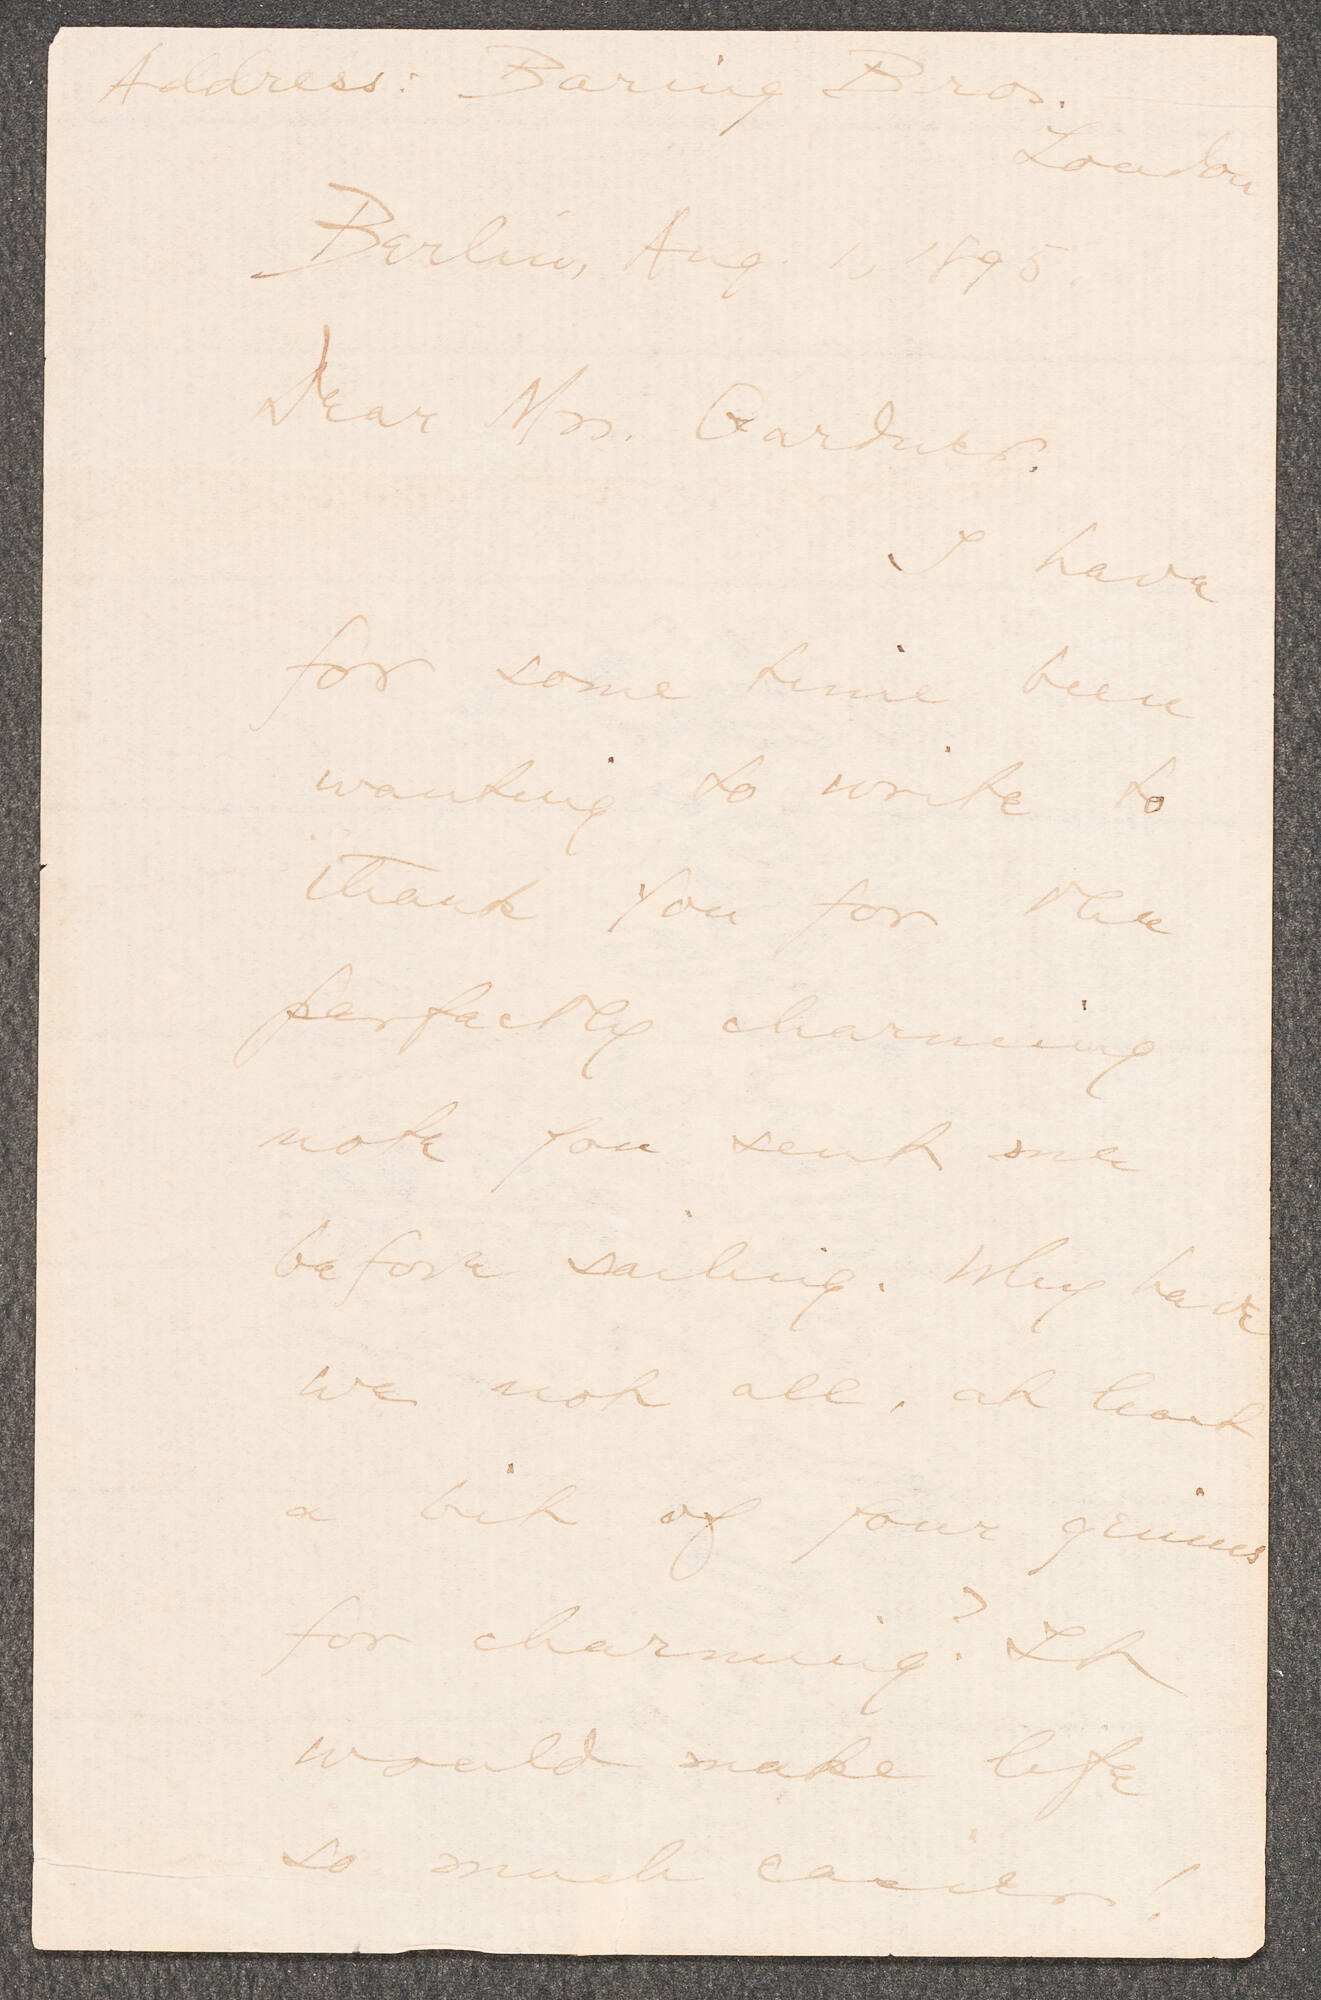 Address: Baring Bros.
London
Berlin, Aug. 1, 1895.
Dear Mrs. Gardner.
I have
for some time been
wanting to write to
thank you for the
perfectly charming
note you sent me
before sailing. Why have
we not all, at least
a bit of your genius
for charming? It
would make life
so much easier!